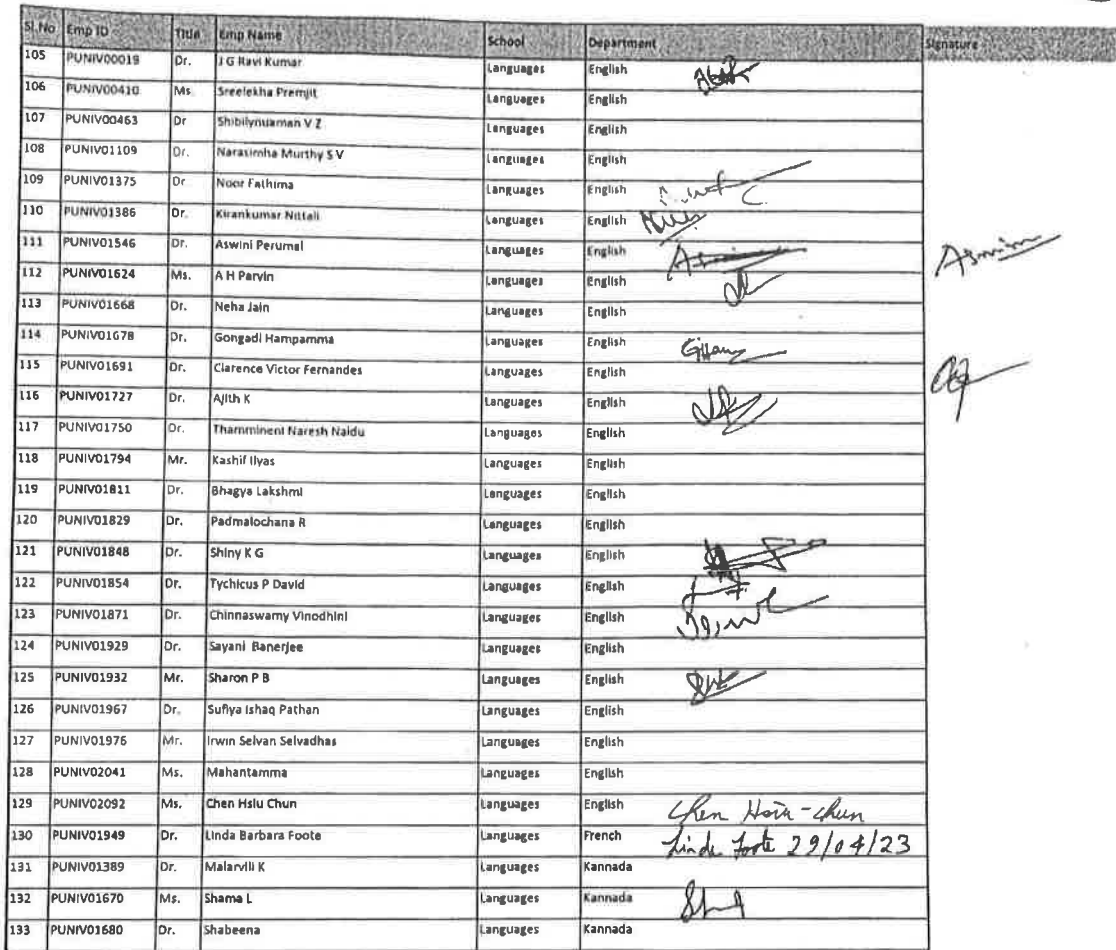 Sl.No Emp ID Title Emp Name School Department Signature
105 PUNIV00019 Dr. J G Ravi Kumar Languages English
106 PUNIV00410 Ms. Sreelekha Premjit Languages English
107 PUNIV00463 Dr Shibilynuaman V Z Languages English
108 PUNIV01109 Dr. Narasimha Murthy S V Languages English
109 PUNIV01375 Dr Noor Fathima Languages English
110 PUNIV01386 Dr. Kirankumar Nittali Languages English
111 PUNIV01546 Dr. Aswini Perumal Languages English
112 PUNIV01624 Ms. A H Parvin Languages English
113 PUNIV01668 Dr. Neha Jain Languages English
114 PUNIV01678 Dr. Gongadi Hampamma Languages English
115 PUNIV01691 Dr. Clarence Victor Fernandes Languages English
116 PUNIV01727 Dr. Ajith K Languages English
117 PUNIV01750 Dr. Thammineni Naresh Naidu Languages English
118 PUNIV01794 Mr. Kashif Ilyas Languages English
119 PUNIV01811 Dr. Bhagya Lakshmi Languages English
120 PUNIV01829 Dr. Padmalochana R Languages English
121 PUNIV01848 Dr. Shiny K G Languages English
122 PUNIV01854 Dr. Tychicus P David Languages English
123 PUNIV01871 Dr. Chinnaswamy Vinodhini Languages English
124 PUNIV01929 Dr. Sayani Banerjee Languages English
125 PUNIV01932 Mr. Sharon P B Languages English
126 PUNIV01967 Dr. Sufiya Ishaq Pathan Languages English
127 PUNIV01976 Mr. Irwin Selvan Selvadhas Languages English
128 PUNIV02041 Ms. Mahantamma Languages English
129 PUNIV02092 Ms. Chen Hsiu Chun Languages English Chen Hsiu-chun
130 PUNIV01949 Dr. Linda Barbara Foote Languages French Linda Foote 29/04/23
131 PUNIV01389 Dr. Malarvili K Languages Kannada
132 PUNIV01670 Ms. Shama L Languages Kannada
133 PUNIV01680 Dr. Shabeena Languages Kannada